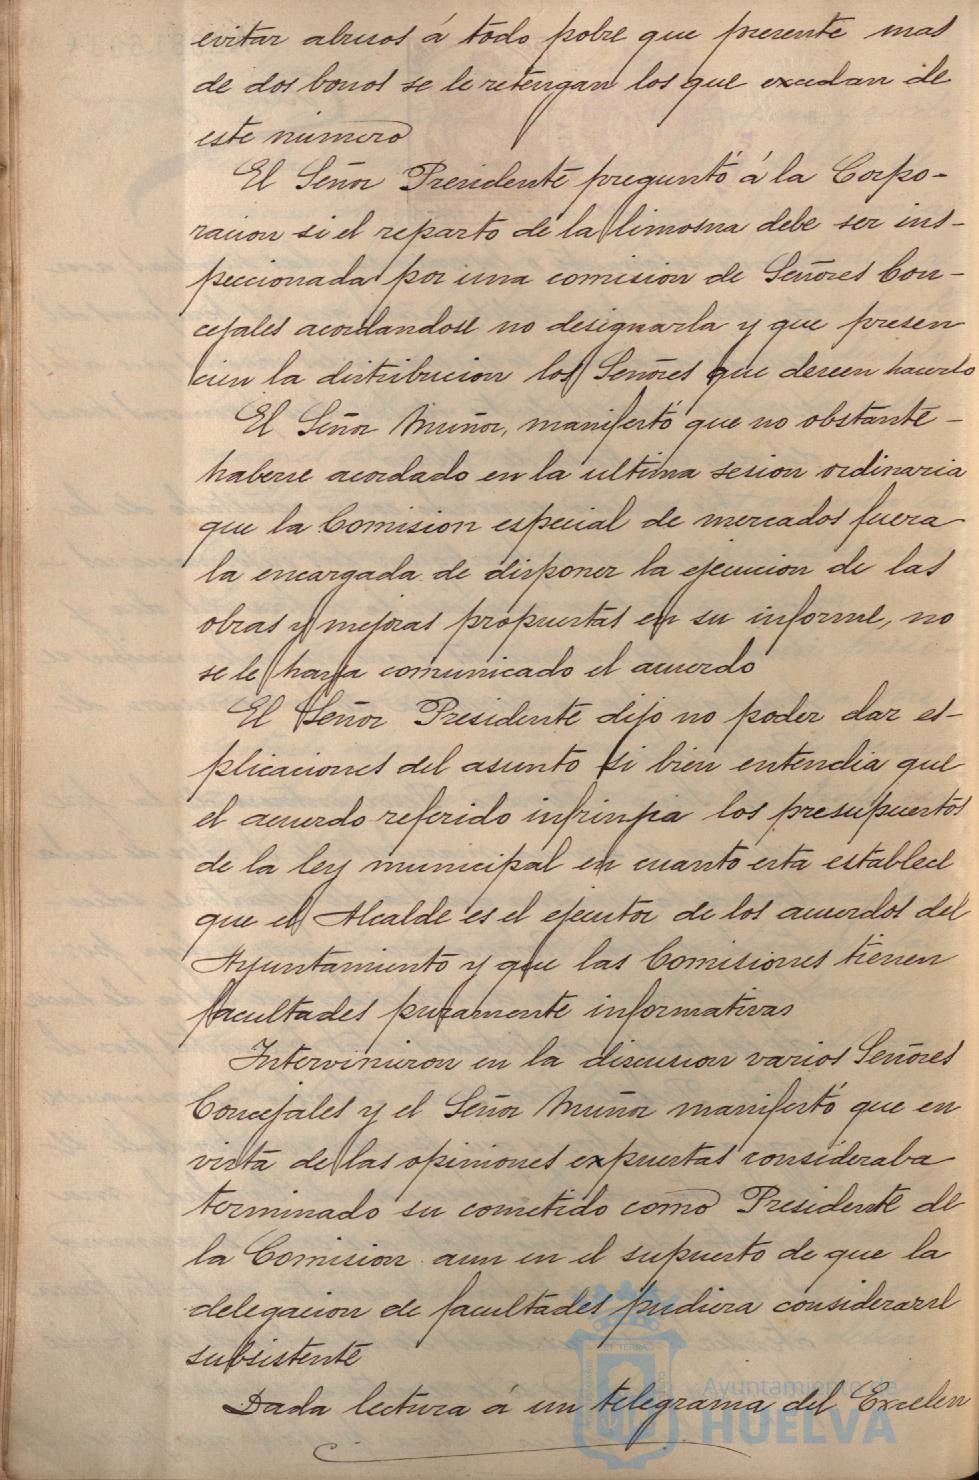 evitar abusos á todo pobre que presente mas
de dos bonos se le retengan los que excedan de
este número
El Señor Presidente preguntó á la Corpo-
racion si el reparto de la limosna debe ser ins-
peccionada por una comision de Señores Con-
cejales acordandose no designarla y que presen
cien la distribucion los Señores que deseen hacerlo
El Señor Muñoz, manifestó que no obstante -
haberse acordado en la ultima sesion ordinaria
que la Comision especial de mercados fuera
la encargada de disponer la ejecucion de las
obras y mejoras propuestas en su informe, no
se le haya comunicado el acuerdo
El Señor Presidente dijo no poder dar es-
plicaciones del asunto si bien entendia que
el acuerdo referido infrinjia los presupuestos
de la ley municipal en cuanto esta establece
que el Alcalde es el ejecutor de los acuerdos del
Ayuntamiento y que las Comisiones tienen
facultades puramente informativas
Intervinieron en la discusion varios Señores
Concejales y el Señor Muñoz manifestó que en
vista de las opiniones expuestas consideraba
terminado su cometido como Presidente de
la Comision aun en el supuesto de que la
delegacion de facultades pudiera considerarse
subsistente
Dada lectura á un telegrama del Excelen
Ayuntamiento de
HUELVA